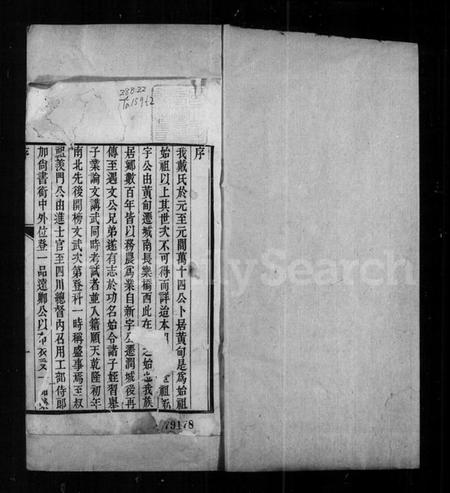 288.22
Ta159t2
序
我戴氏於元至元間萬十四公卜居黃甸是為始祖
始祖以上其世次不可得而詳迨本 祖新
字公由黃甸遷城南長樂橋西此在 之始 我族
居鄉數百年皆以務農為業自新字 遷潤城後再
傳至遇文公兄弟遂有志於功名始合諸子姪習舉
子業論文講武同時考試者並入籍順天乾隆初年
南北先後開榜文武次第登科一時稱盛事焉至叔
照羨門公由進士官至四川總督內召用工部侍郎
加尚書銜中外位登一品達卿公以
79178
MySearch